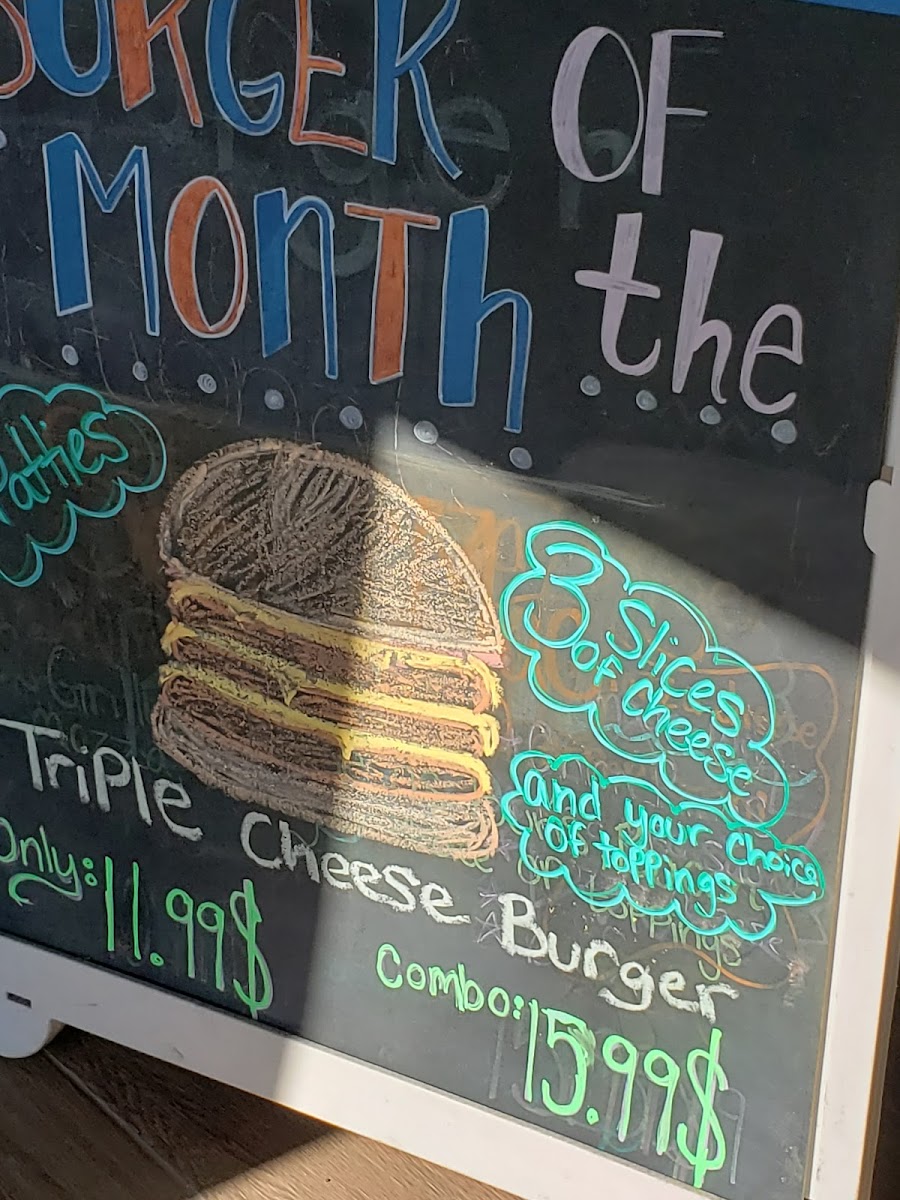 BURGER OF
MONTh the
Patties
3 Slices
of cheese
and your choice
of toppings
Triple Cheese Burger
Only: 11.99$
Combo: 15.99$